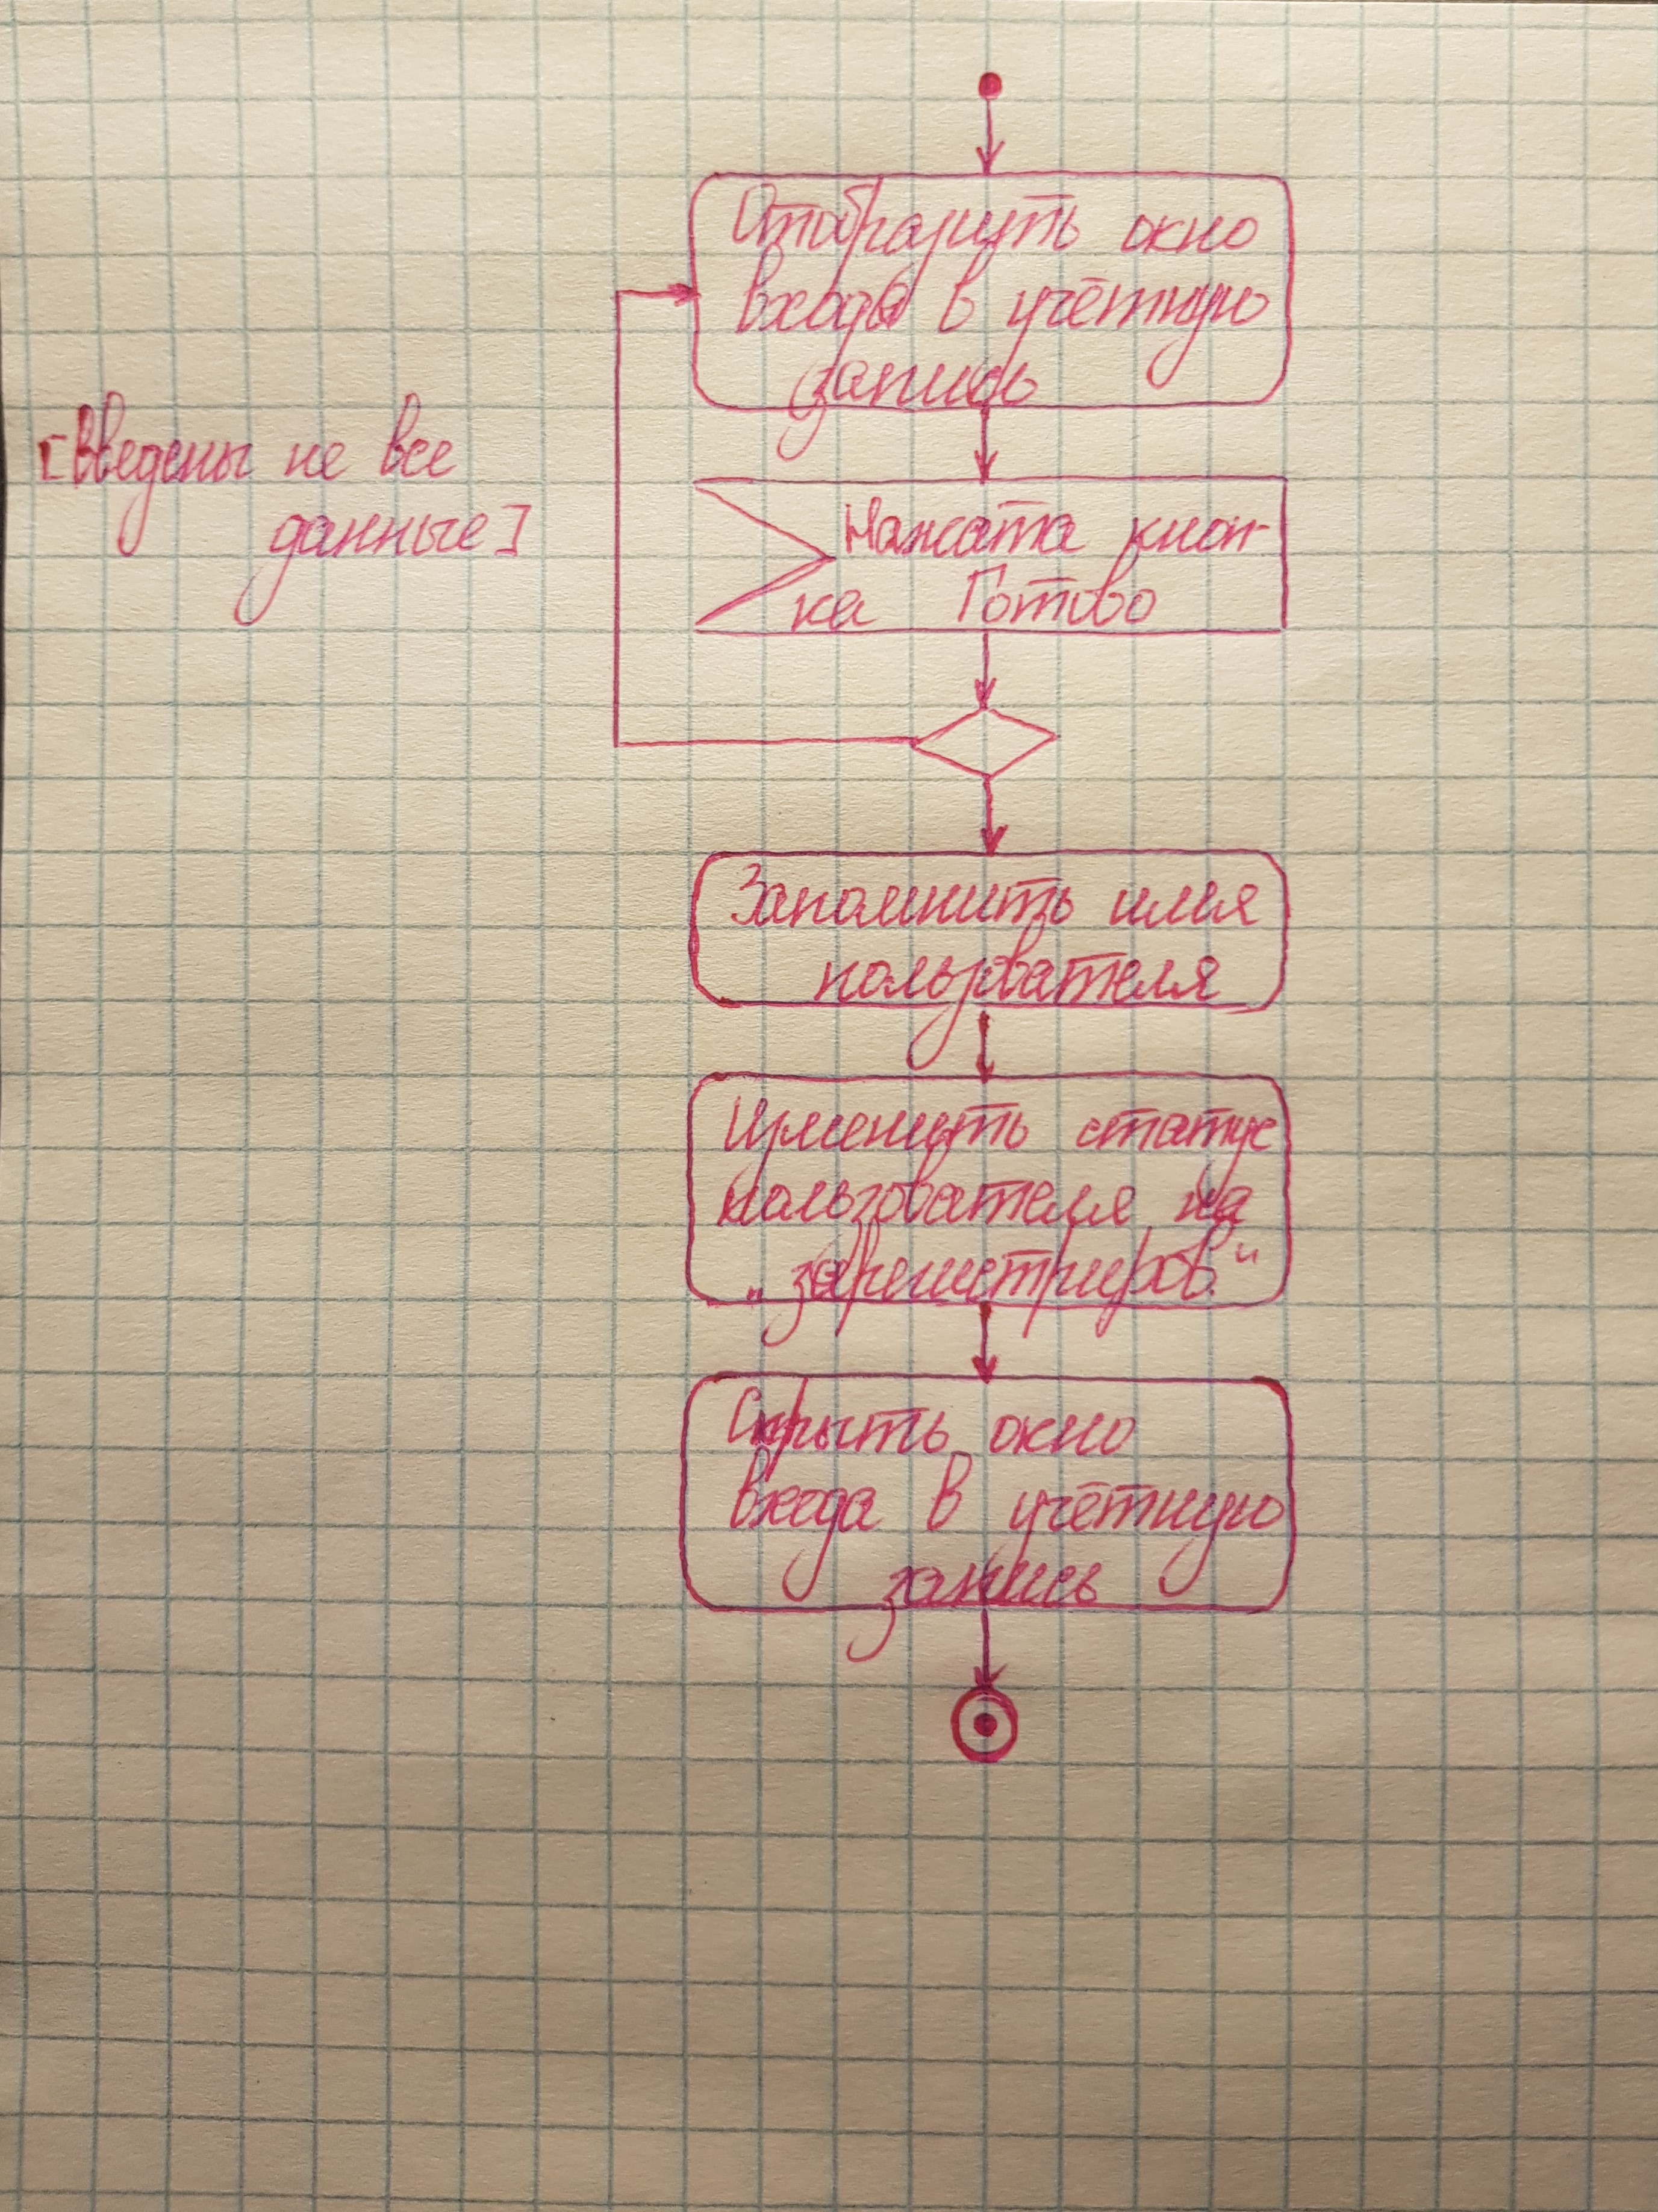 Отобразить окно
входа в учётную
запись
[Введены не все
данные]
Нажата кноп-
ка Готово
Запомнить имя
пользователя
Изменить статус
пользователя на
„зарегистриров.“
Скрыть окно
входа в учётную
запись